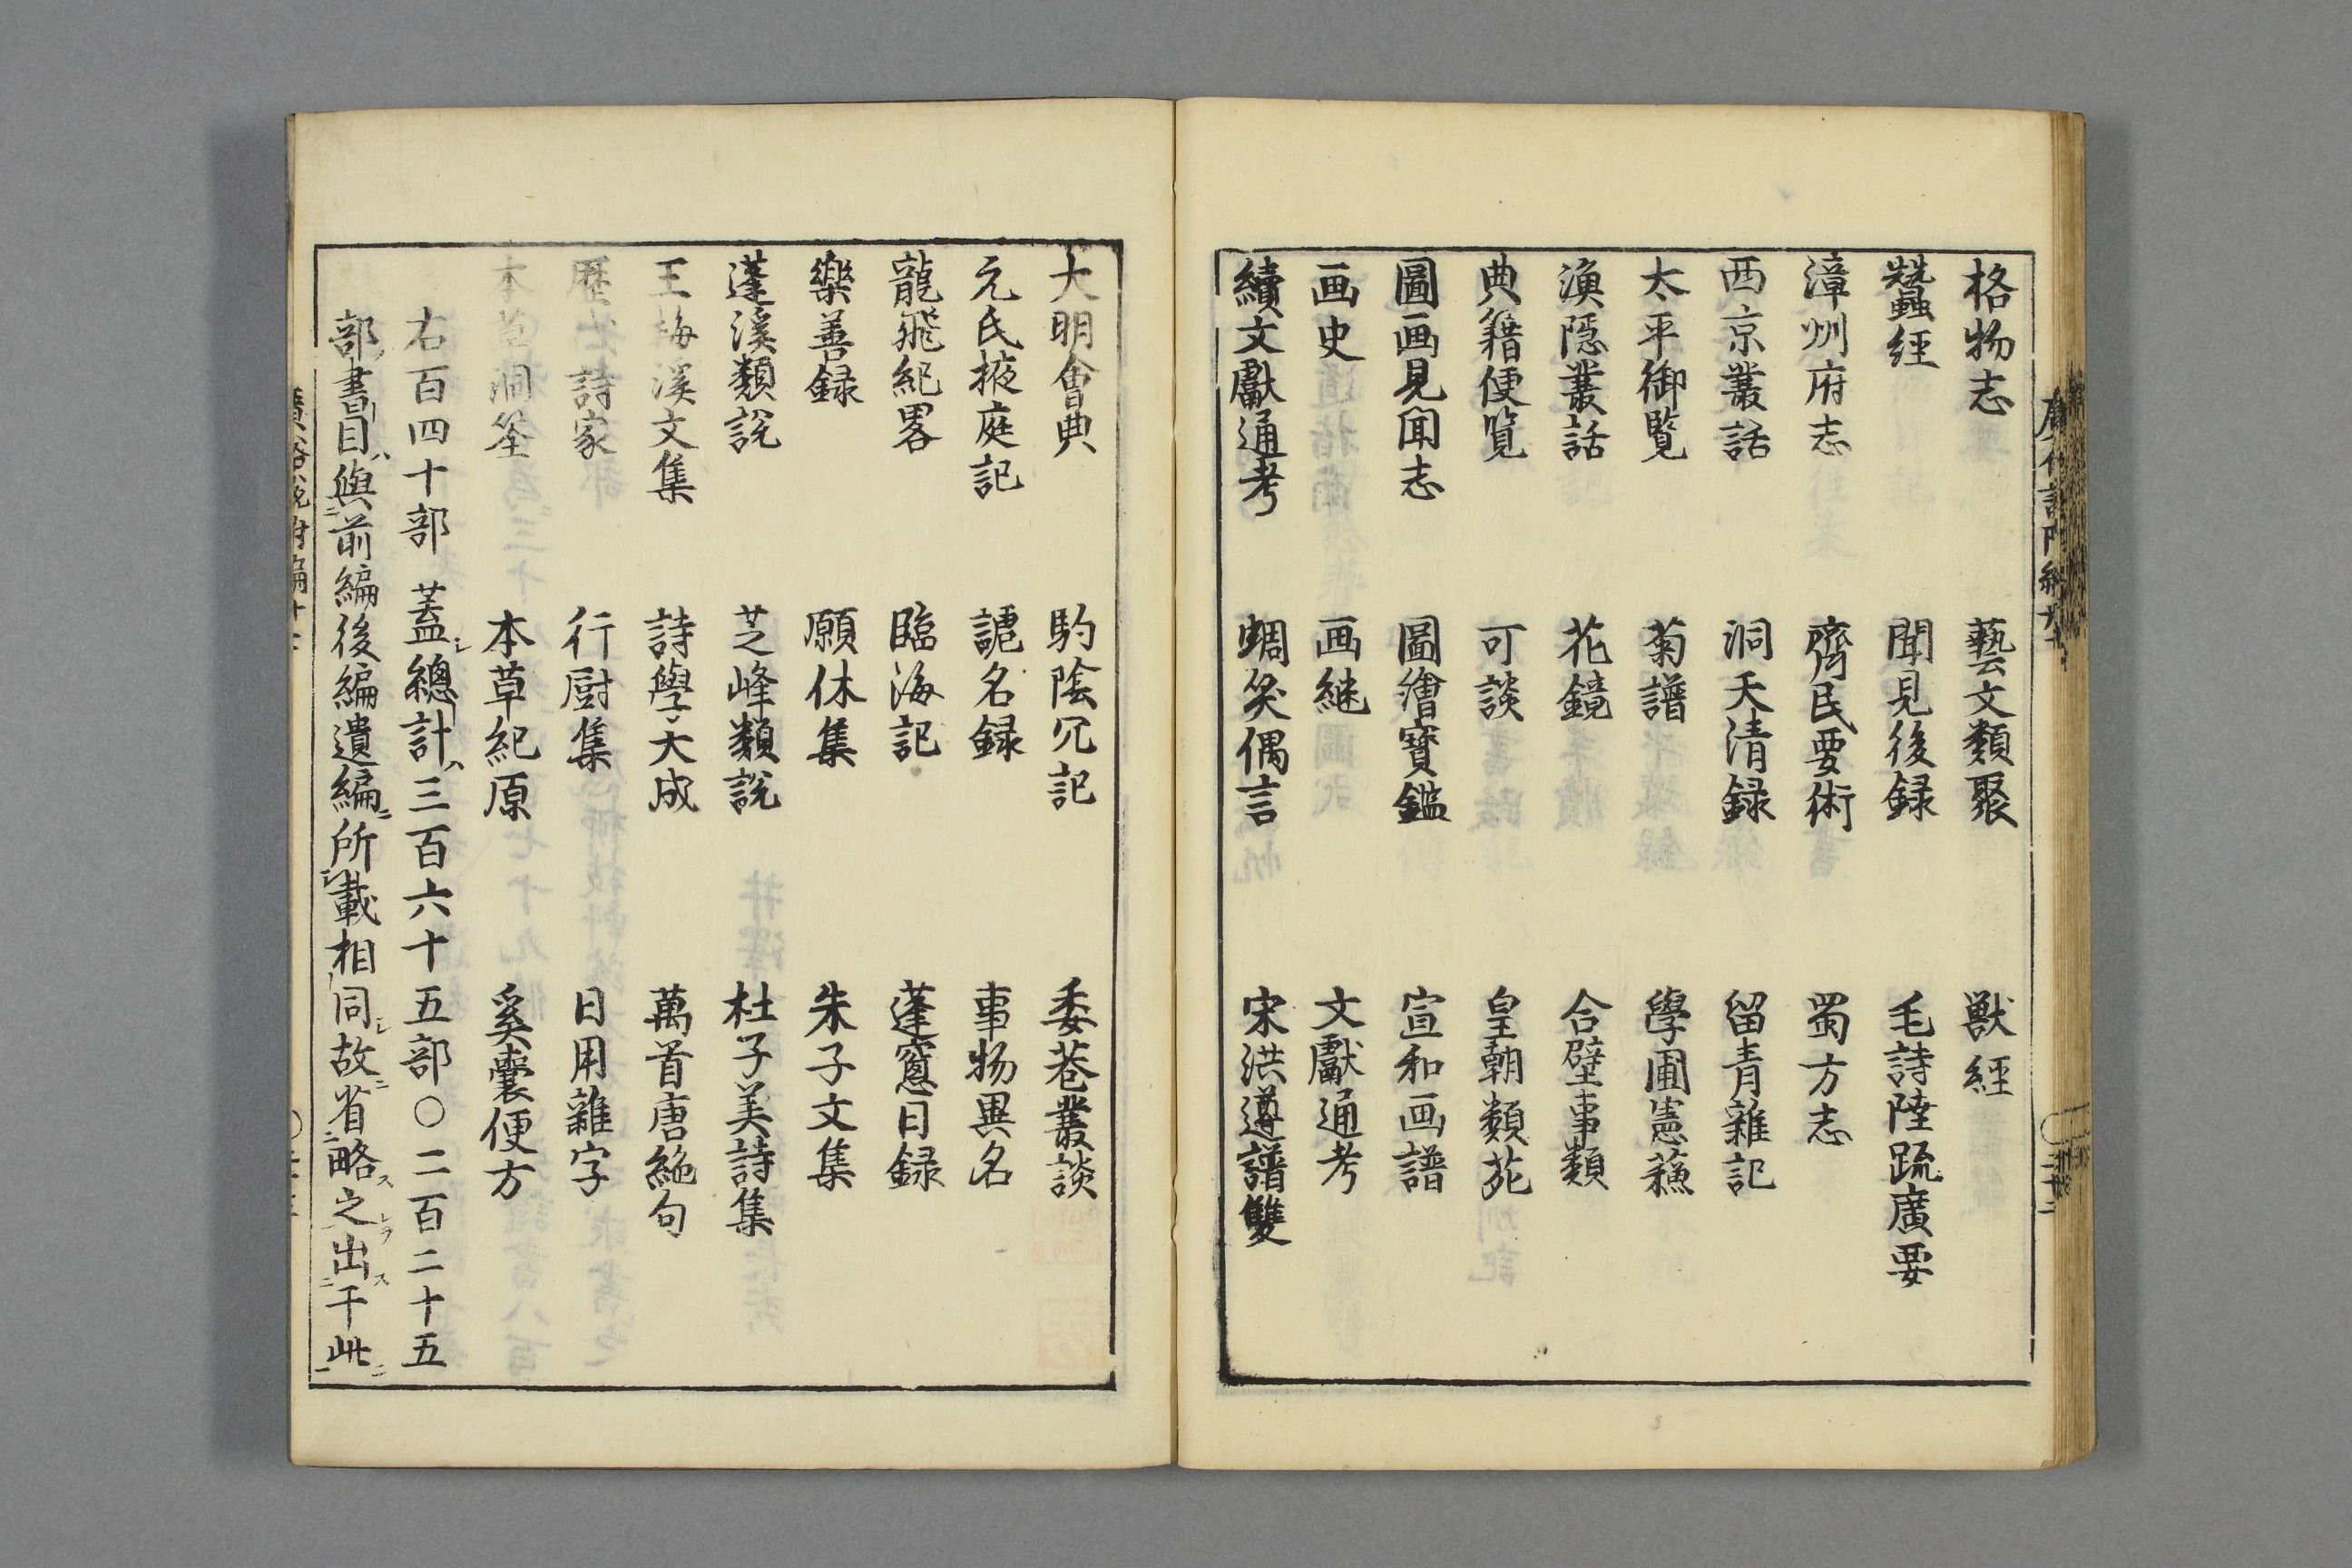 格物志　藝文類聚　獣経
蠶経　聞見後録　毛詩陸疏廣要
漳州府志　齊民要術　蜀方志
西京叢話　洞天清録　留青雜記
太平御覧　菊譜　學圃憲蘓
漁隠叢話　花鏡　合璧事類
典籍便覧　可談　皇朝類苑
圖画見聞志　圖繪寳鑑　宣和画譜
画史　画継　文獻通考
續文獻通考　蜩笑偶言　宋洪遵譜雙
大明會典　駒陰冗記　委巷叢談
元氏掖庭記　諕名録　事物異名
龍飛紀畧　臨海記　蓬窓日録
樂善録　願休集　朱子文集
蓬溪類説　芝峰類説　杜子美詩集
王梅溪文集　詩學大成　萬首唐絶句
歴代詩家　行厨集　日用雜字
本草洞筌　本草紀原　奚囊便方
右百四十部　蓋總計ハ三百六十五部〇二百二十五
部ノ書目ハ與前編後編遺編ニ所載相同故ニ省略之出于此